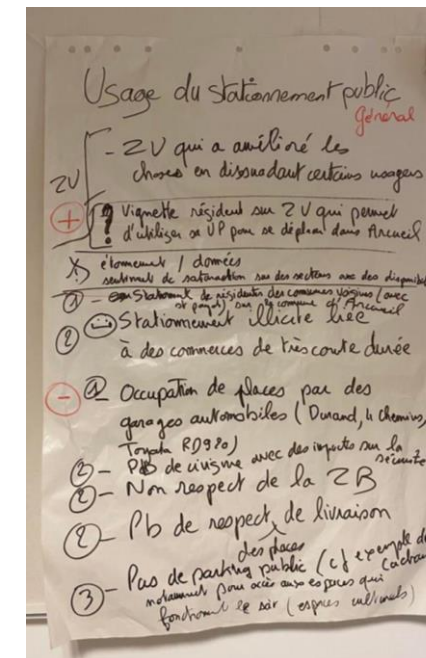 Usage du stationnement public
général
- ZV qui a amélioré les
choses en dissuadant certains usagers
ZV
+
? Vignette résident sur ZV qui permet
d'utiliser sa VP pour se déplacer dans Arcueil
étonnement / données
sentiment de saturation sur des secteurs avec des disponibil
① - Stationnmt de résidents des communes voisines (avec
st payant) sur la commune d'Arcueil
② Stationnement illicite liée
à des commerces de très courte durée
- ② Occupation de places par des
garages automobiles (Durand, 4 chemins,
Toyota RD920)
③ - Pb de civisme avec des impacts sur la
sécurité
② - Non respect de la ZB
② - Pb de respect des places de livraison
③ - Pas de parking public (cf exemple de
Cachan
notamment pour accès aux espaces qui
fonctionnent le soir (espaces culturels)